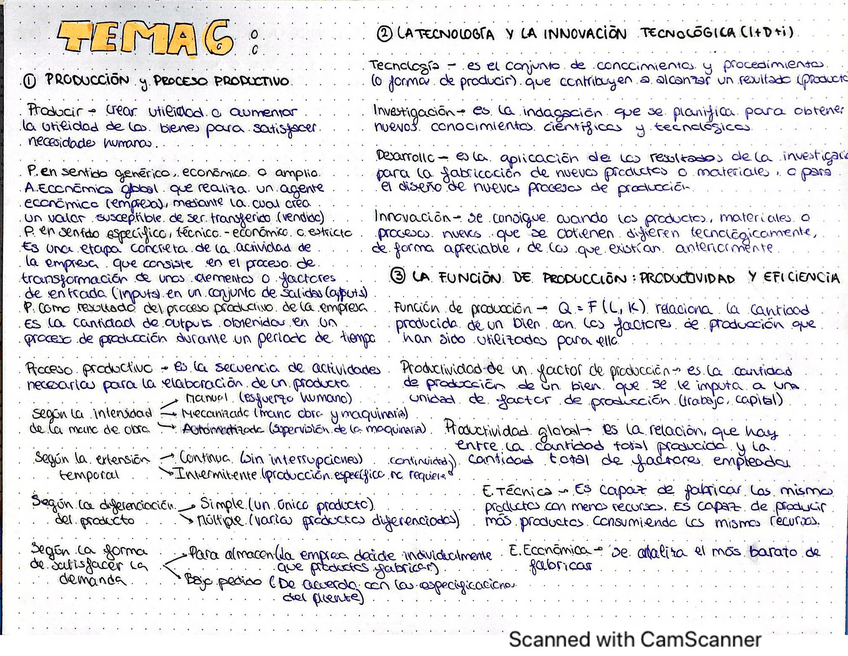 TEMA 6:
① PRODUCCIÓN y PROCESO PRODUCTIVO
Producir → crear utilidad o aumentar
la utilidad de los bienes para satisfacer
necesidades humanas.
P. en sentido genérico, económico o amplio.
A. Económica global que realiza un agente
económico (empresa), mediante la cual crea
un valor susceptible de ser transferido (vendido)
P. en sentido específico, técnico-económico o estricto
Es una etapa concreta de la actividad de
la empresa que consiste en el proceso de
transformación de unos elementos o factores
de entrada (inputs) en un conjunto de salidas (outputs)
P. como resultado del proceso productivo de la empresa
Es la cantidad de outputs obtenidos en un
proceso de producción durante un periodo de tiempo
Proceso productivo → Es la secuencia de actividades
necesarias para la elaboración de un producto
Según la intensidad
de la mano de obra
→ Manual (esfuerzo humano)
→ Mecanizado (mano obra y maquinaria)
→ Automatizado (supervisión de la maquinaria)
Según la extensión
temporal
→ Continua (sin interrupciones)
→ Intermitente (producción específica no requiere continuidad)
Según la diferenciación
del producto
→ Simple (un único producto)
→ Múltiple (varios productos diferenciados)
Según la forma
de satisfacer la
demanda
→ Para almacén (la empresa decide individualmente
que productos fabricar)
→ Bajo pedido (De acuerdo con las especificaciones
del cliente)
② LA TECNOLOGÍA Y LA INNOVACIÓN TECNOLÓGICA (I+D+i)
Tecnología → es el conjunto de conocimientos y procedimientos
(o formas de producir) que contribuyen a alcanzar un resultado (producto
Investigación → es la indagación que se planifica para obtener
nuevos conocimientos científicos y tecnológicos
Desarrollo → es la aplicación de los resultados de la investigació
para la fabricación de nuevos productos o materiales, o para
el diseño de nuevos procesos de producción
Innovación → se consigue cuando los productos, materiales o
procesos nuevos que se obtienen difieren tecnológicamente,
de forma apreciable, de los que existían anteriormente
③ LA FUNCIÓN DE PRODUCCIÓN: PRODUCTIVIDAD Y EFICIENCIA
Función de producción → Q = F(L, K) relaciona la cantidad
producida de un bien con los factores de producción que
han sido utilizados para ello
Productividad de un factor de producción → es la cantidad
de producción de un bien que se le imputa a una
unidad de factor de producción (trabajo, capital)
Productividad global → Es la relación que hay
entre la cantidad total producida y la
cantidad total de factores empleados
E. Técnica → Es capaz de fabricar los mismos
productos con menos recursos. Es capaz de producir
más productos consumiendo los mismos recursos.
E. Económica → se analiza el más barato de
fabricar
Scanned with CamScanner